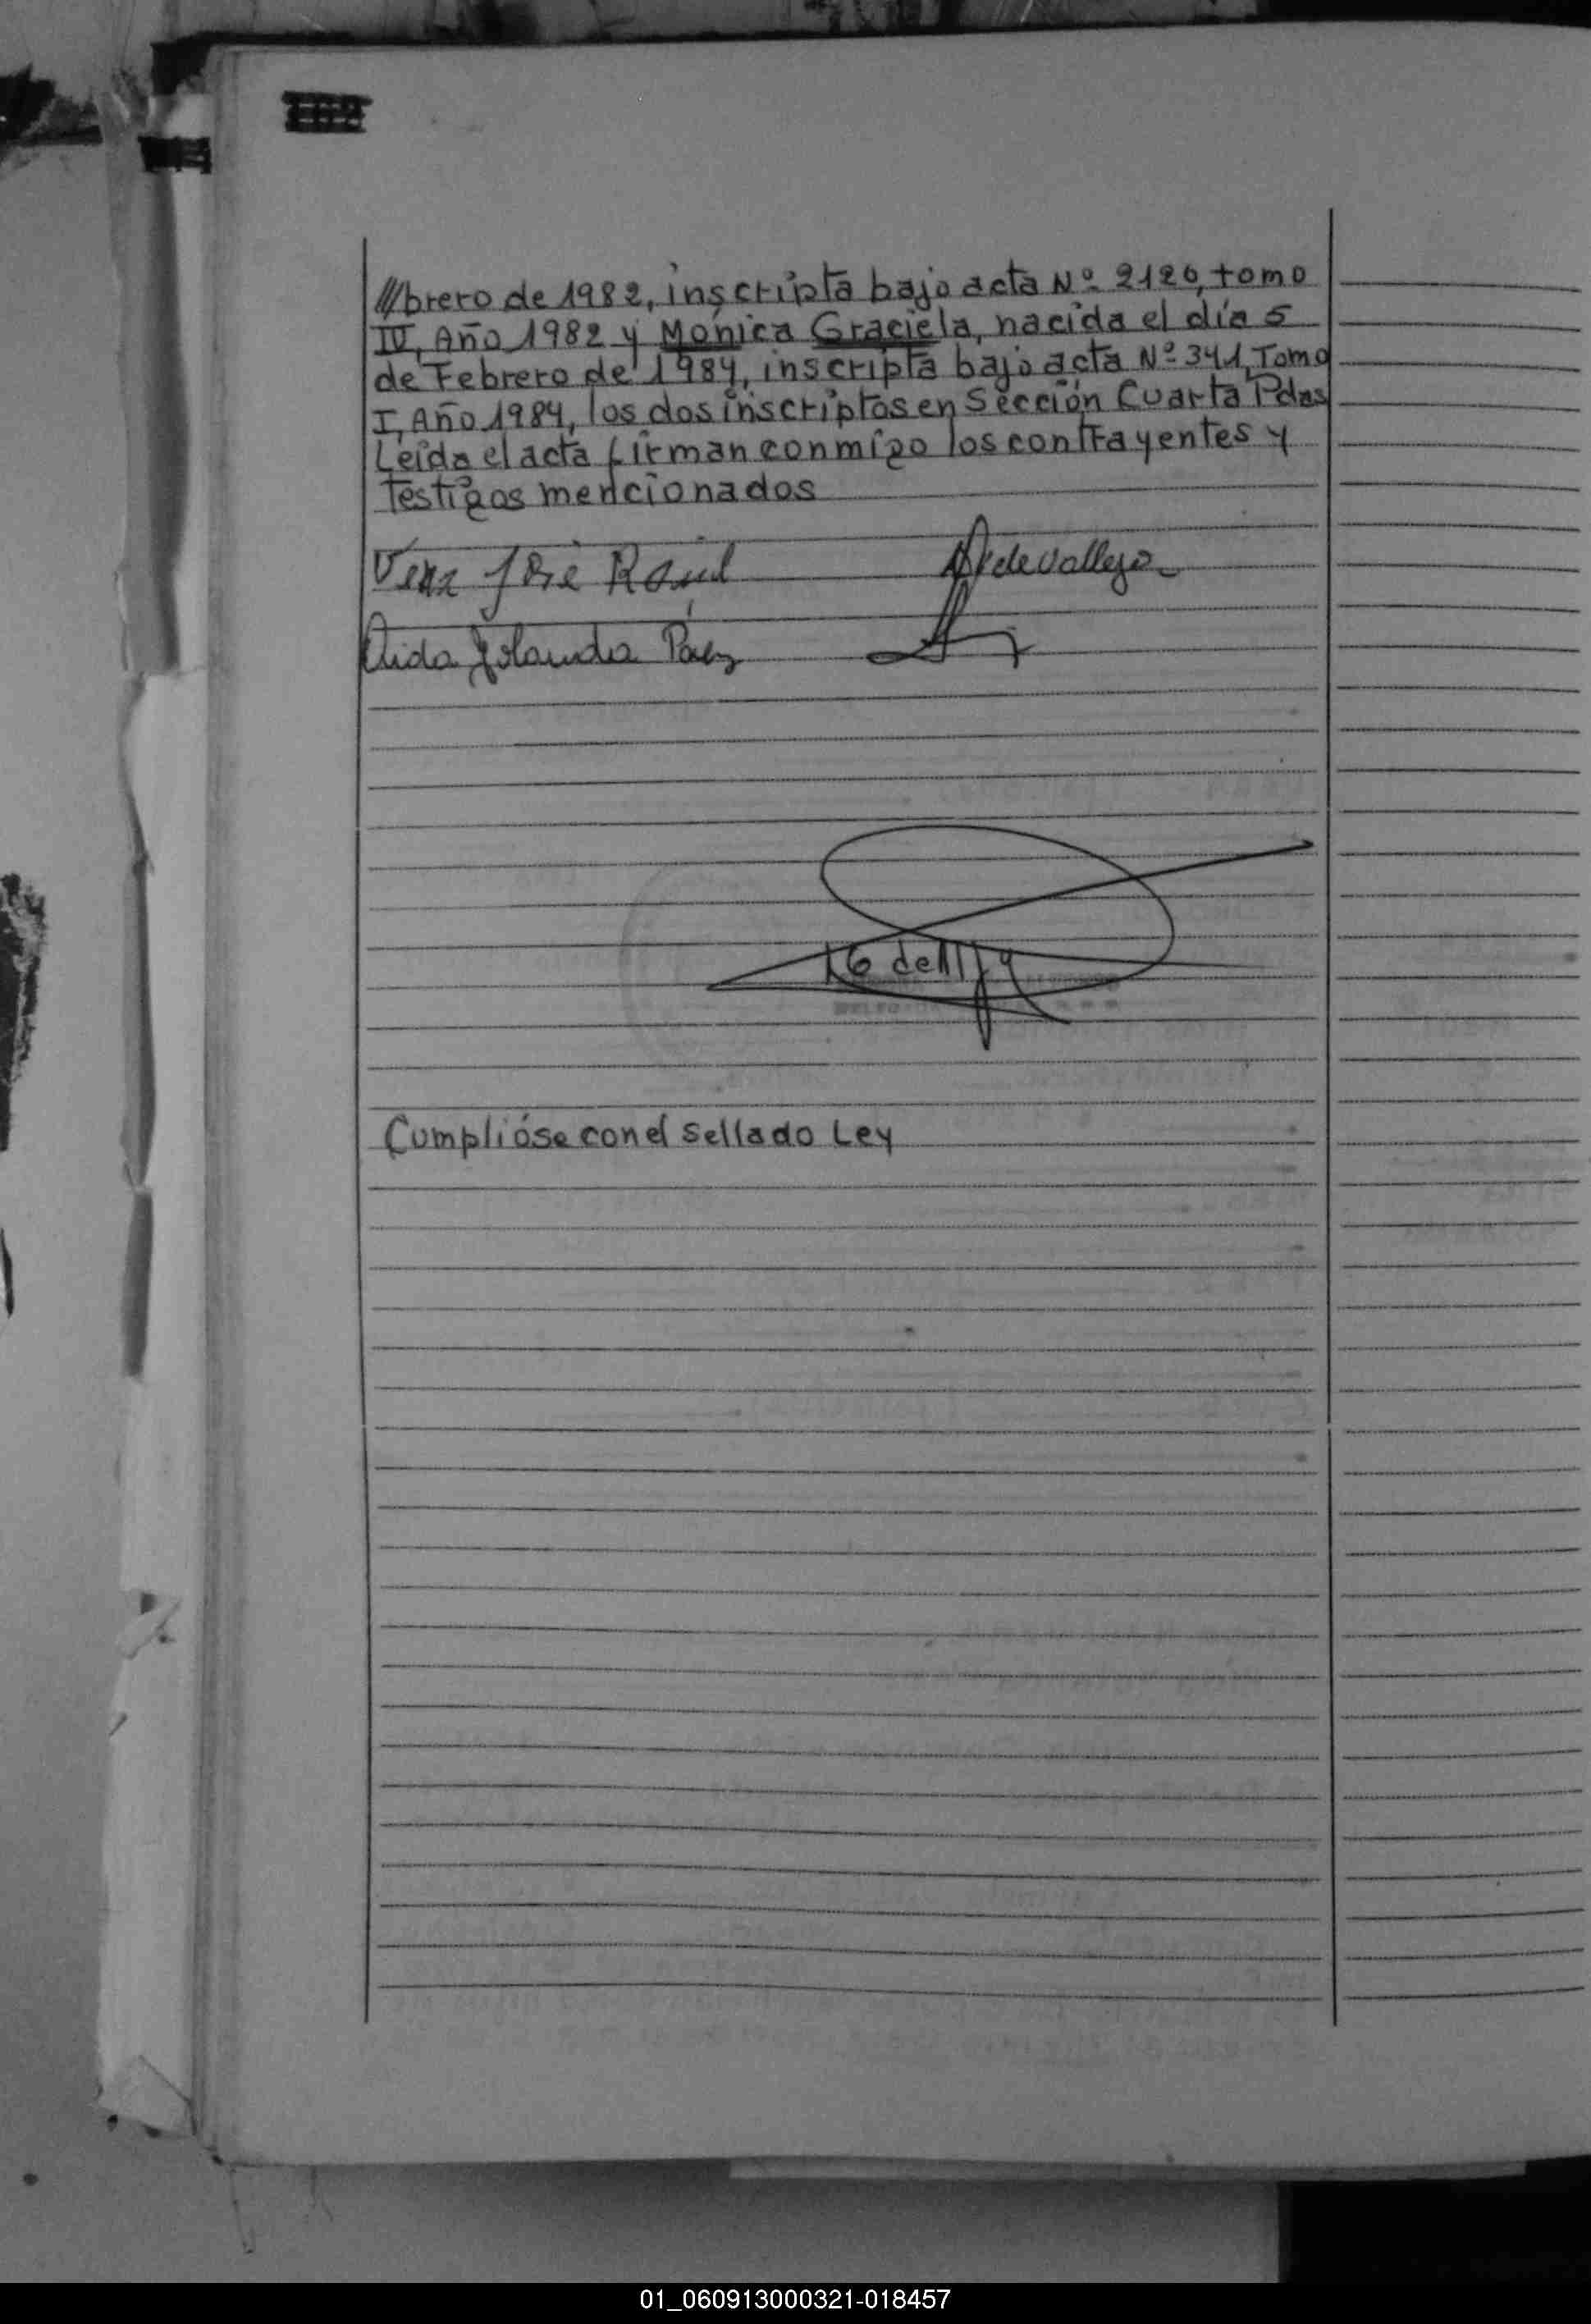 ///brero de 1982, inscripta bajo acta Nº 2126, tomo
IV, Año 1982 y Mónica Graciela, nacida el día 5
de Febrero de 1984, inscripta bajo acta Nº 341, Tomo
I, Año 1984, los dos inscriptos en Sección Cuarta Pdas
Leída el acta firman conmigo los contrayentes y
testigos mencionados
Vera José Raúl
de Vallejo
Aida Yolanda Páez
Cumplióse con el sellado Ley
01_060913000321-018457